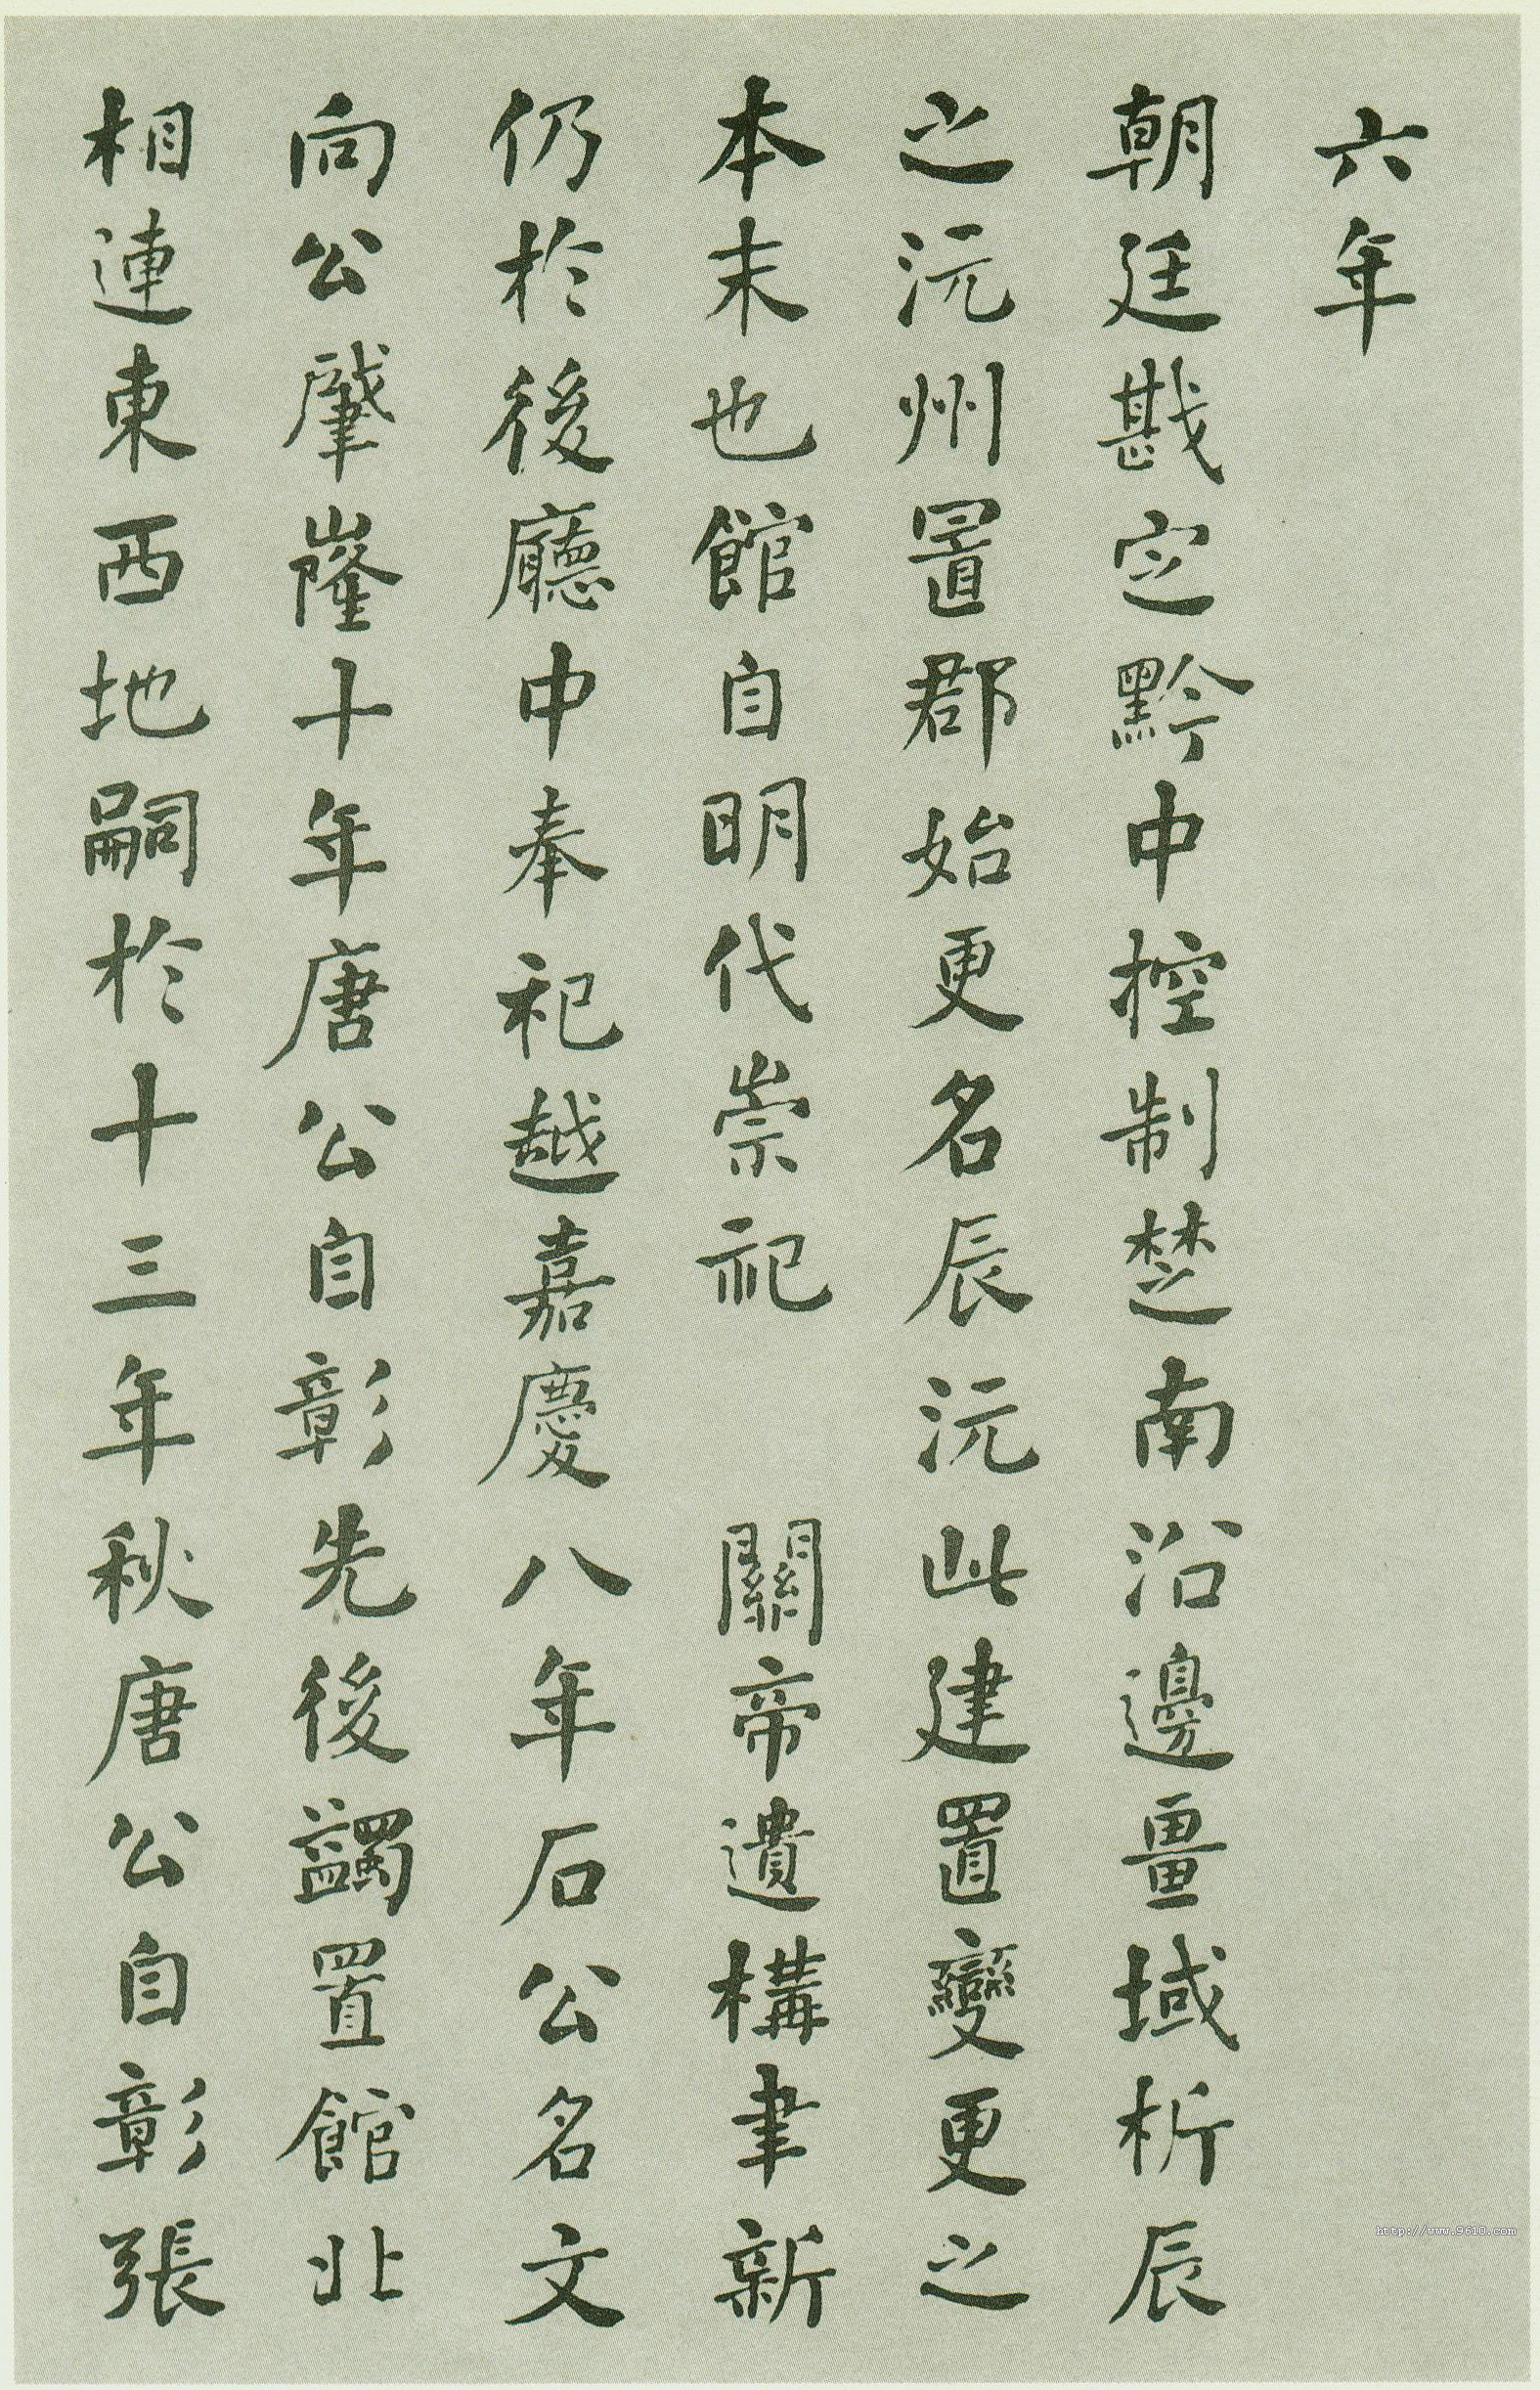 六年
朝廷戡定黔中控制楚南沿邊畺域析辰
之沅州置郡始更名辰沅此建置變更之
本末也館自明代崇祀 關帝遺構聿新
仍於後廳中奉祀越嘉慶八年石公名文
向公肈隆十年唐公自彰先後蠲置館北
相連東西地嗣於十三年秋唐公自彰張
http://www.9610.com